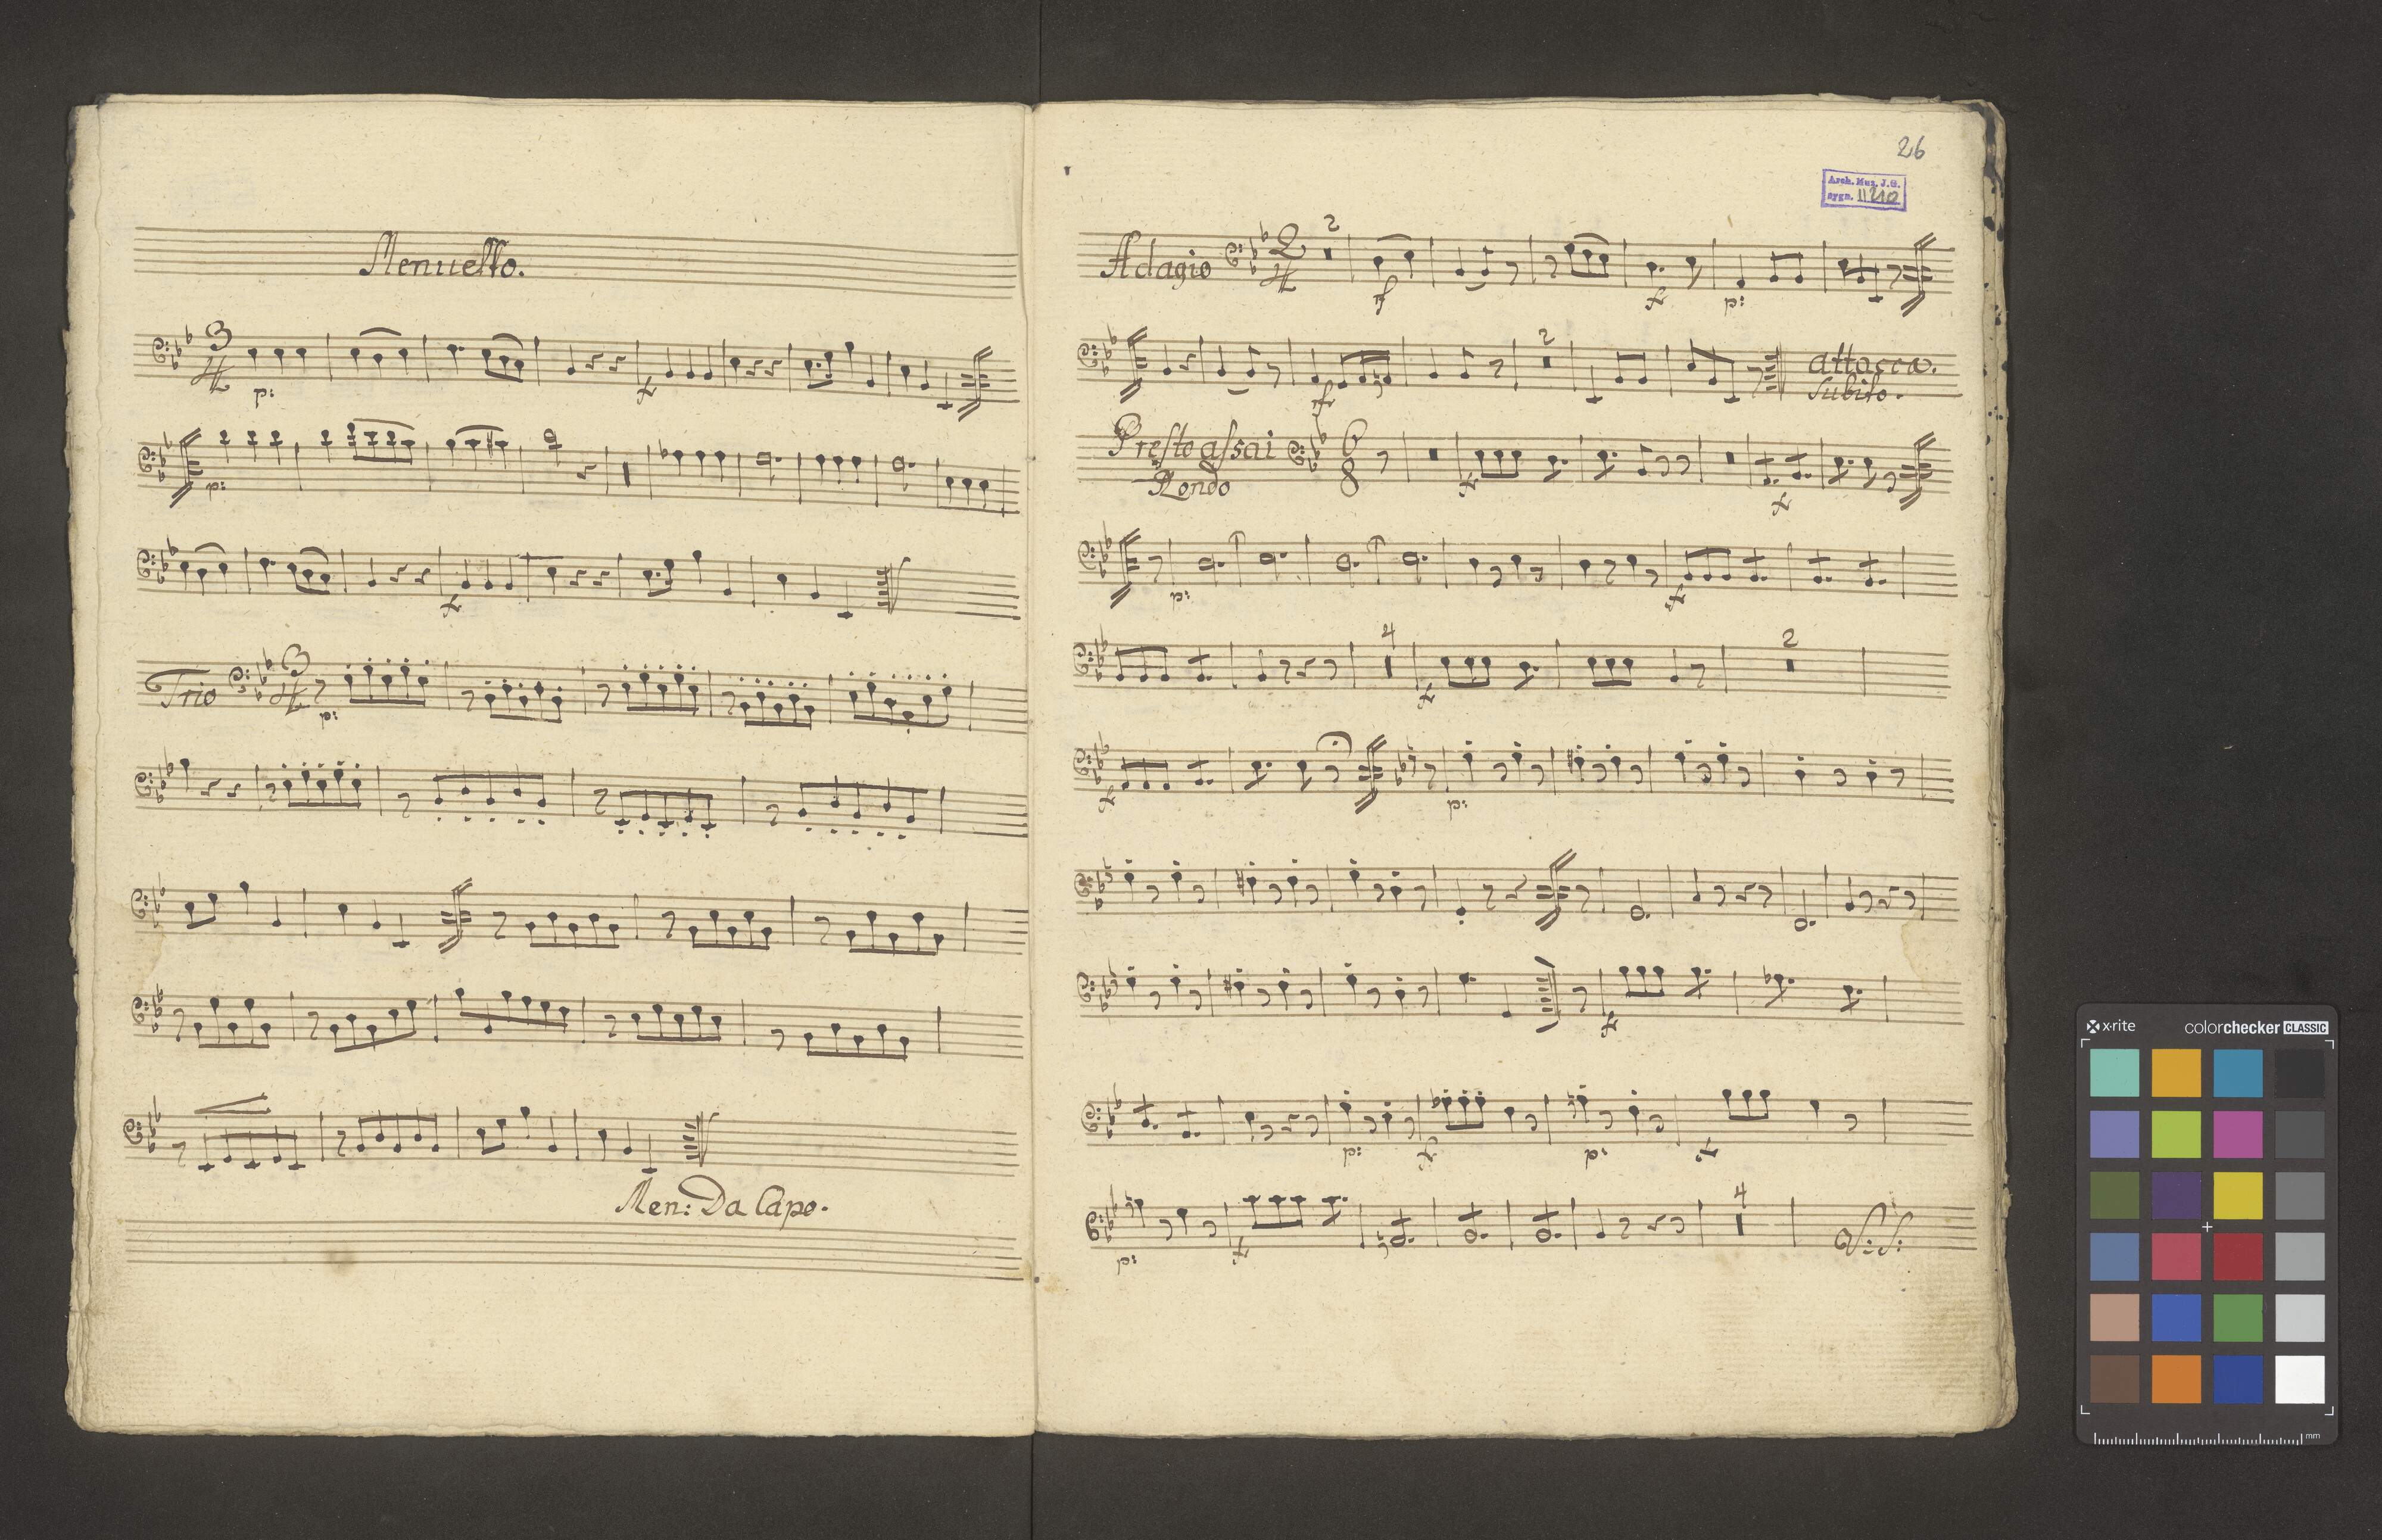 Menuetto.
3/4
p:
f
p:
f
Trio 3/4
p:
Men: Da Capo.
26
Arch. Muz. J.G.
sygn. II 210
Adagio 2/4 2
f f p:
2
f
attacca.
subito.
Presto assai 6/8
Rondo
f f
p: f
4 2
f
f p:
f
p: f p: f
4
p: f
V: S:
x-rite colorchecker CLASSIC
mm